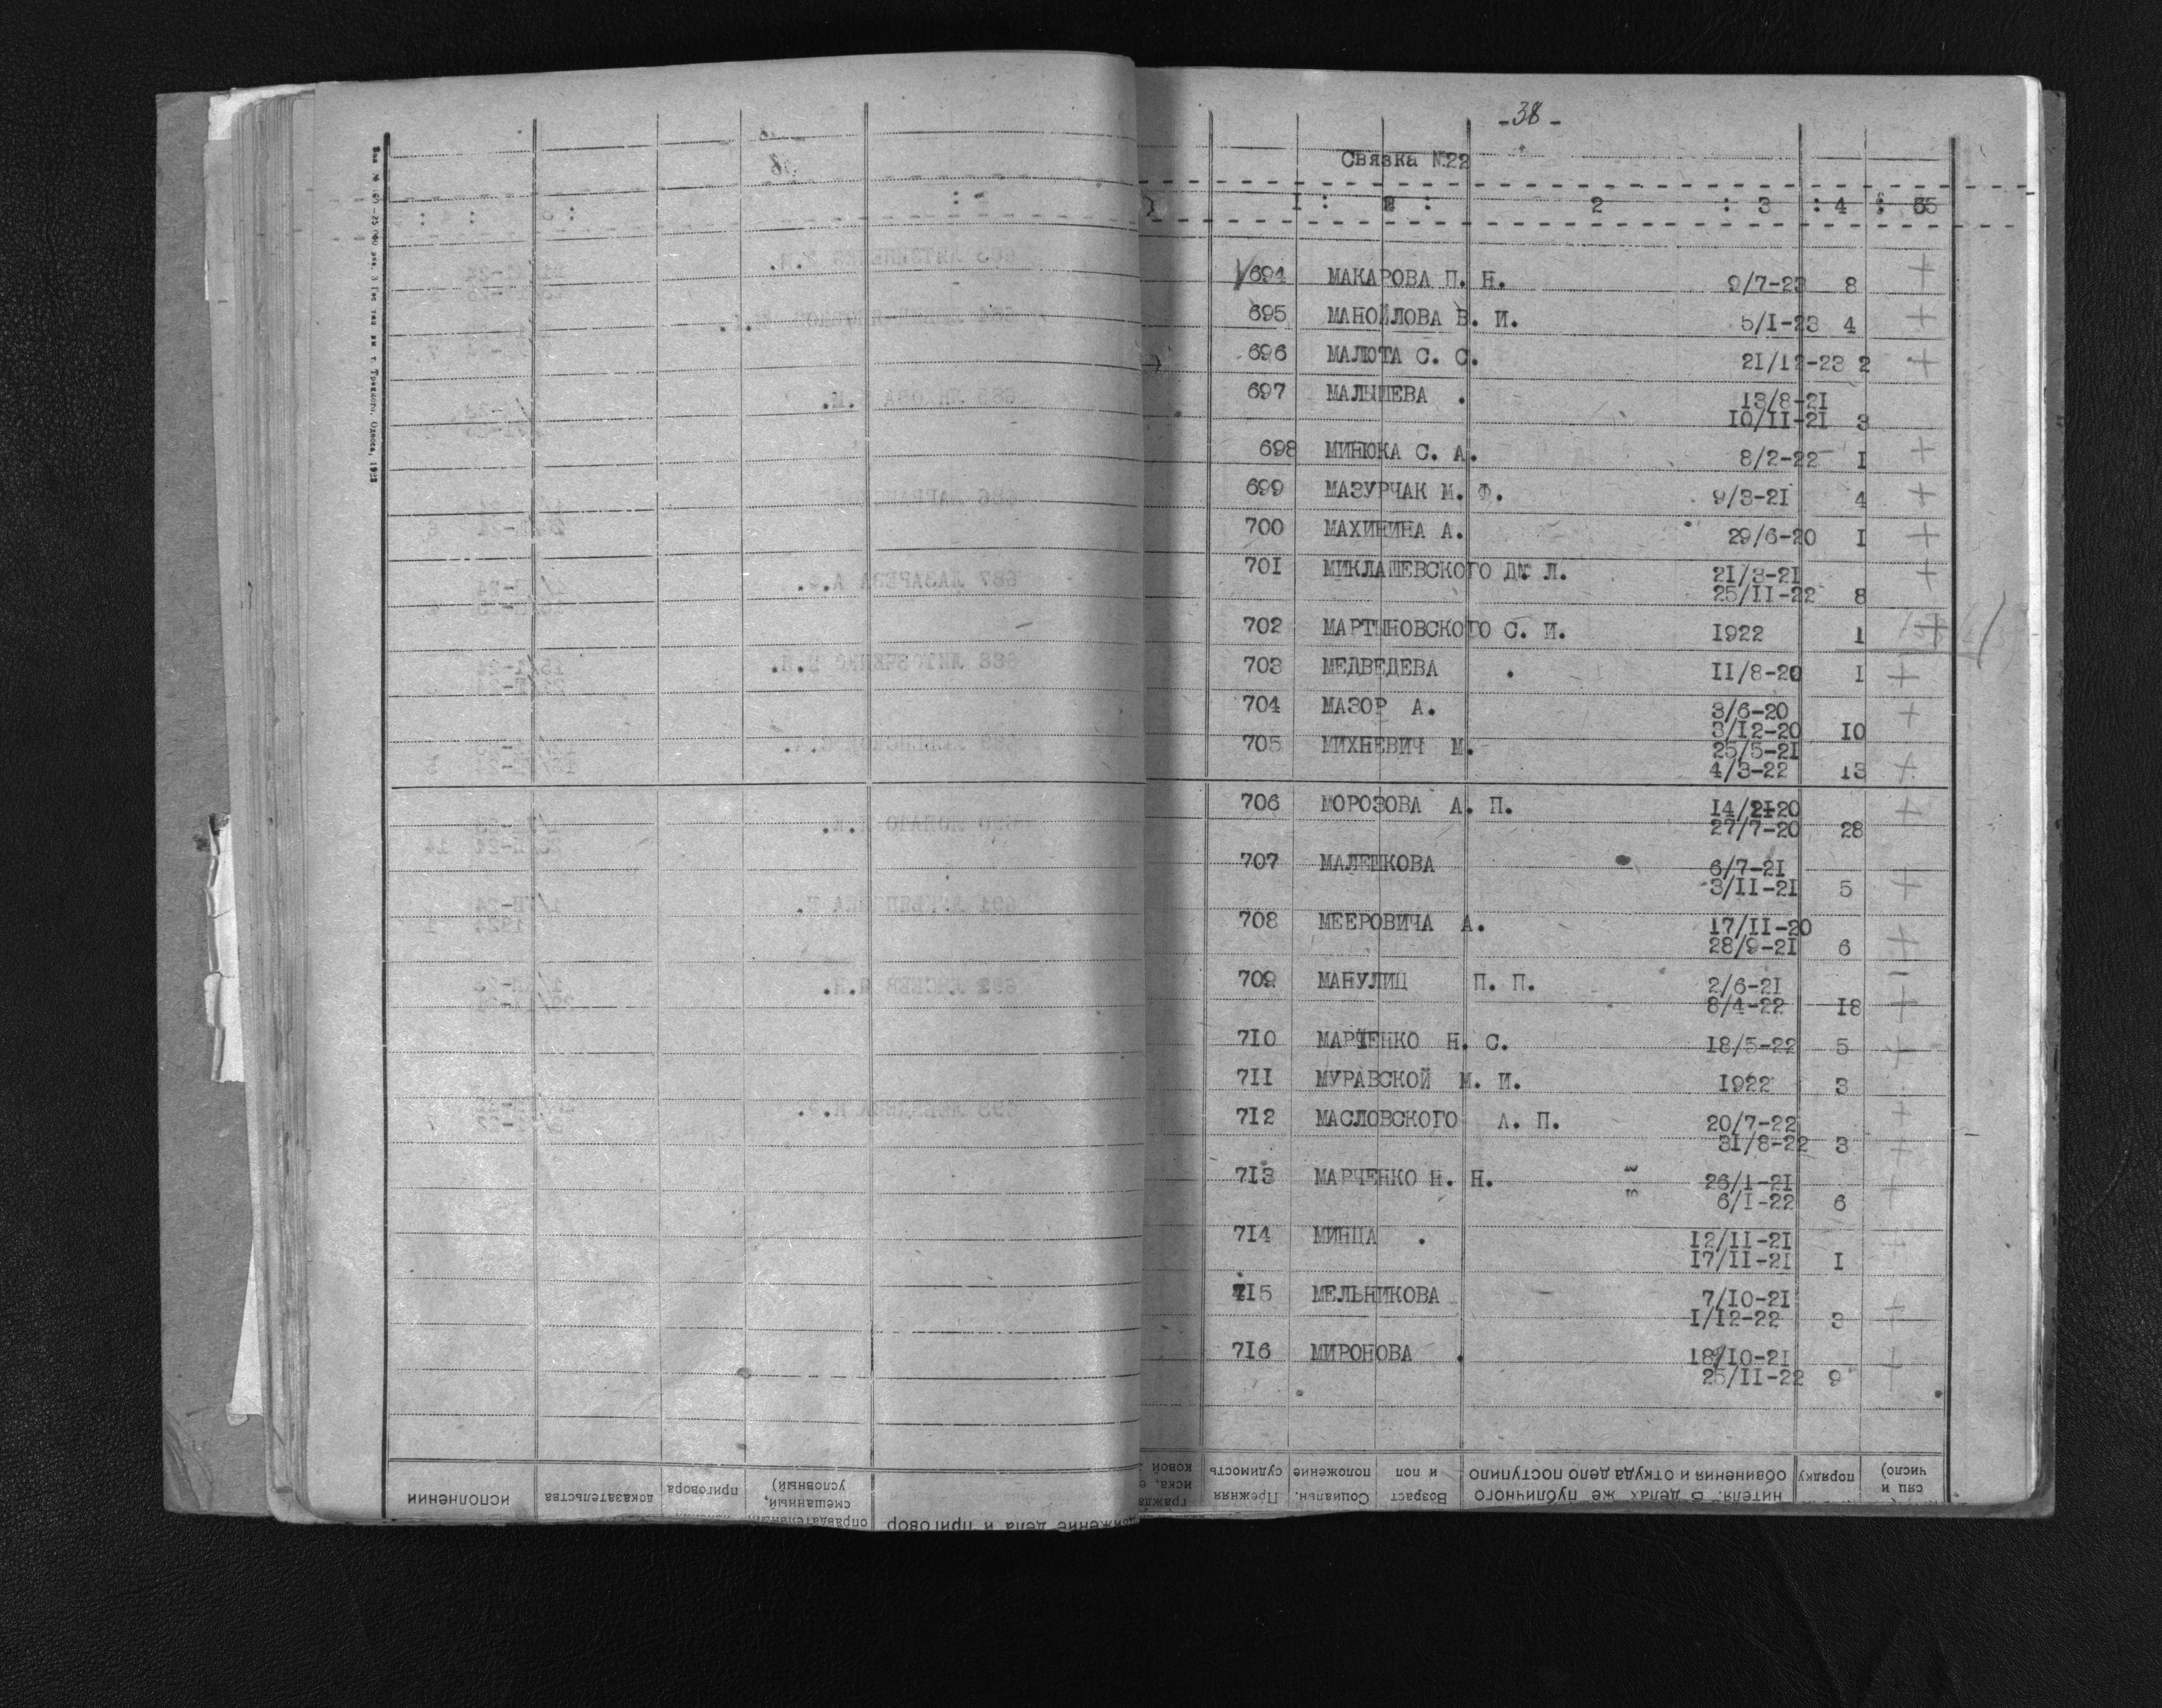 -38-
Связка №22
1 : 2 : 2 : 3 : 4 : 5
694 МАКАРОВА П. Н. 9/7-23 8 +
695 МАНОЙЛОВА В. И. 5/I-23 4 +
696 МАЛЮТА С. С. 21/12-23 2 +
697 МАЛЫШЕВА . 13/8-21
10/II-21 3
698 МИНЮКА С. А. 8/2-22 I +
699 МАЗУРЧАК М. Ф. 9/3-21 4 +
700 МАХИНИНА А. 29/6-20 I +
701 МИКЛАШЕВСКОГО Л. 21/3-21 +
25/II-22 8
702 МАРТЫНОВСКОГО С. И. I922 1
703 МЕДВЕДЕВА . II/8-20 I +
704 МАЗОР А. 3/6-20 +
3/I2-20 I0
705 МИХНЕВИЧ М. 25/5-21
4/3-22 13 +
706 МОРОЗОВА А. П. +
27/7-20 28
707 МАЛЕШКОВА 6/7-21
3/II-21 5 +
708 МЕЕРОВИЧА А. I7/II-20
28/9-21 6 +
709 МАНУЛИЦ П. П. 2/6-21
8/4-22 I8 +
7I0 МАРЧЕНКО Н. С. I8/5-22 5 +
7II МУРАВСКОЙ М. И. I922 3
7I2 МАСЛОВСКОГО А. П. 20/7-22 +
31/8-22 3 +
7I3 МАРЧЕНКО Н. Н. 26/1-21 +
6/I-22 6
7I4 МИНЦА . I2/II-21 +
I7/II-21 I
7I5 МЕЛЬНИКОВА 7/I0-21
I/I2-22 3 +
7I6 МИРОНОВА . 18/I0-21 +
25/II-22 9
исполнении
доказательства
приговора
смешанный,
условный)
оправдательный,
движение дела и приговор
Прежняя
судимость
Социальн.
положение
Возраст
и пол
нителя. В делах же публичного
обвинения и откуда дело поступило
порядку
сяц и
число)